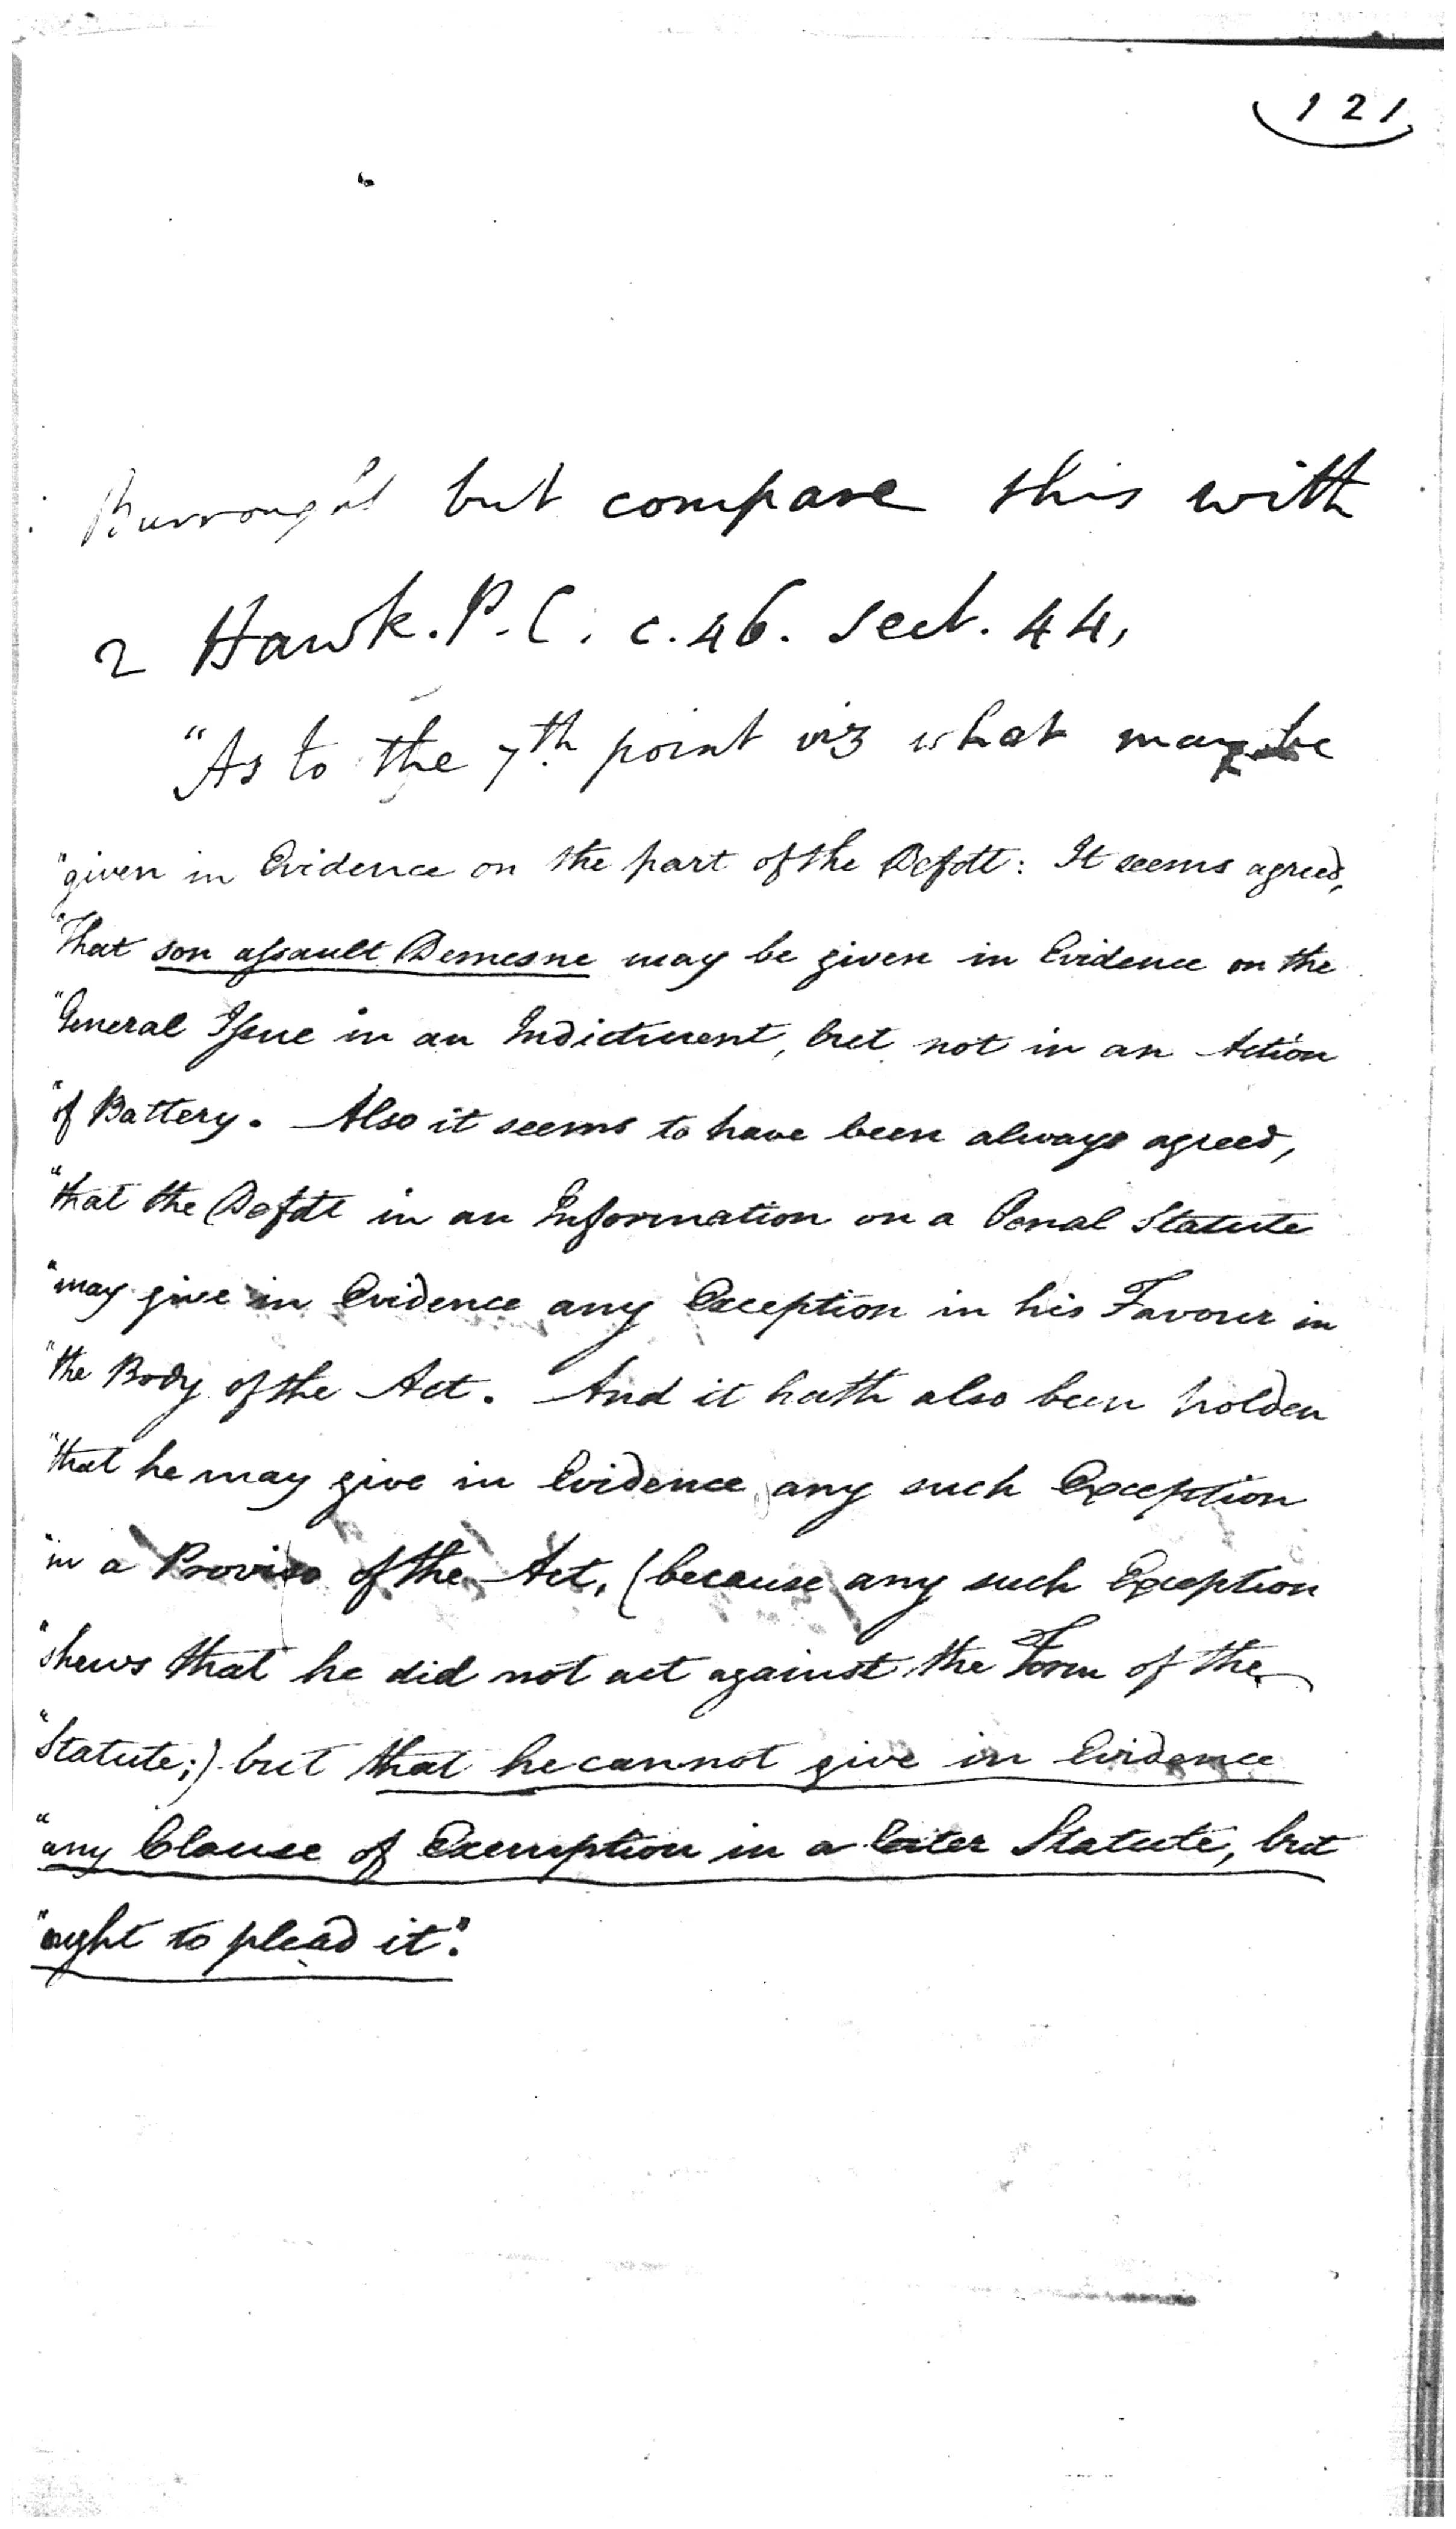 121
Burrough's but compare this with
2 Hawk. P. C. c. 46. sect. 44,
"As to the 7th. point viz what may be
"given in Evidence on the part of the Defdt: It seems agreed,
"That son assault Demesne may be given in Evidence on the
"General Issue in an Indictment, but not in an Action
"of Battery. Also it seems to have been always agreed,
"that the Defdt in an Information on a Penal Statute
"may give in Evidence any Exception in his Favour in
"the Body of the Act. And it hath also been holden
"that he may give in Evidence any such Exception
"in a Proviso of the Act, (because any such Exception
"shews that he did not act against the Form of the
"Statute;) but that he cannot give in Evidence
"any Clause of Exemption in a later Statute, but
"ought to plead it".